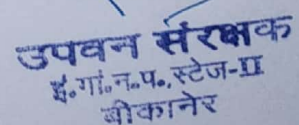 उपवन संरक्षक
इं.गां.न.प.,स्टेज-II
बीकानेर